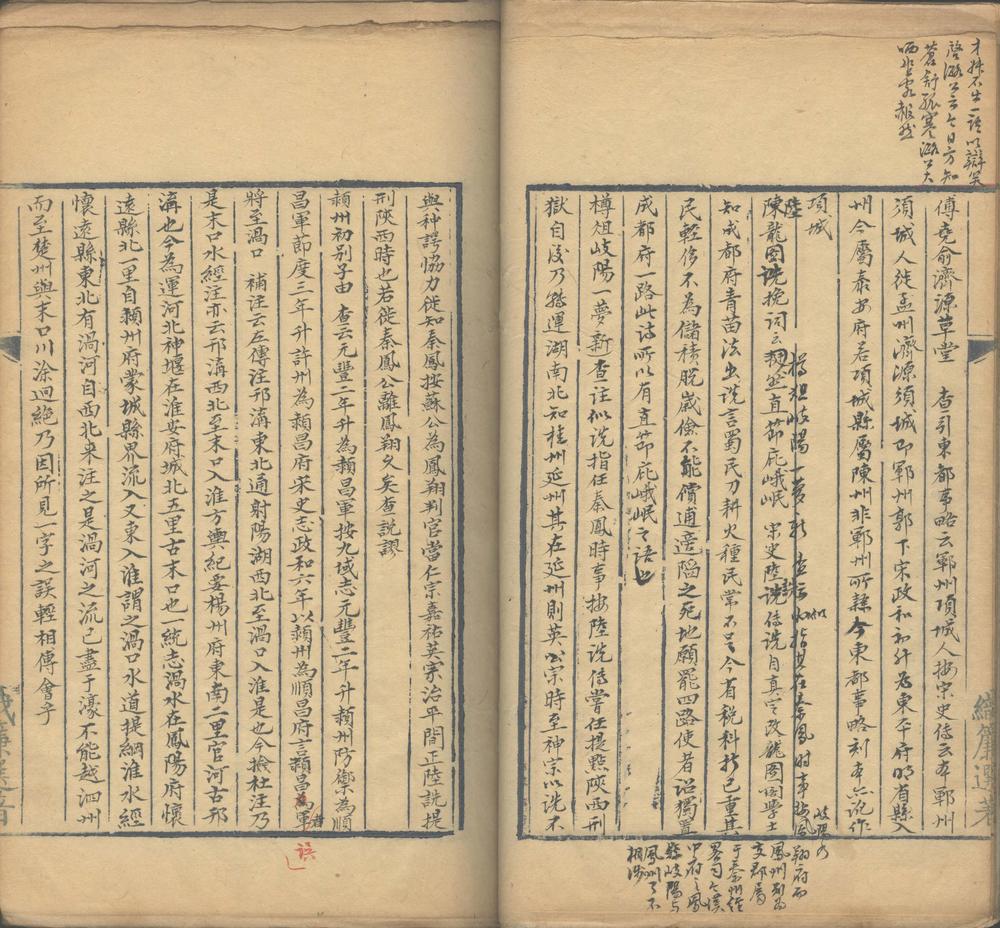 才姝不生一語以辯矣
啓潞公云今日方知
蒼舒孤寒潞公大
哂
傅堯俞濟源草堂 查引東都事略云鄆州項城人按宋史傳云本鄆州
須城人徙孟州濟源須城即鄆州郭下宋政和初升為東平府明省縣入
州今屬泰安府若項城縣屬陳州非鄆州所隸今東都事略刻本亦訛作
項城
陸
陳龍圖詵挽詞云 挺然直節庇峨岷 宋史陸詵傳詵自真定改龍圖閣學士
樽俎岐陽一夢新 查云似指其在秦鳳時事按鳳翔府
知成都府青苗法出詵言蜀民刀耕火種民常不足今省稅科折已重其
民輕佻不為儲積脫歲儉不能償逋適陷之死地願罷四路使者詔獨置
成都府一路此詩所以有直節庇峨岷之語也
樽俎岐陽一夢新查注似詵指任秦鳳時事按陸詵傳嘗任提點陝西刑
獄自後乃移運湖南北知桂州延州其在延州則英宗時至神宗以詵不
岐陽乃
鳳翔府而
鳳州別為
支郡屬
于秦州
中府之鳳
縣岐陽與
鳳州了不
相涉
織簾選著
與种諤恊力徙知秦鳳按蘇公為鳳翔判官當仁宗嘉祐英宗治平間正陸詵提
刑陝西時也若徙秦鳳公離鳳翔久矣查說謬
潁州初別子由 查云元豐二年升為潁昌軍按九域志元豐二年升潁州防禦為順
昌軍節度三年升許州為潁昌府宋史志政和六年以潁州為順昌府言潁昌為軍
者
誤
將至渦口 補注云左傳注邗溝東北通射陽湖西北至渦口入淮是也今撿杜注乃
是末口水經注亦云邗溝西北至末口入淮方輿紀要楊州府東南二里官河古邗
溝也今為運河北神堰在淮安府城北五里古末口也一統志渦水在鳳陽府懷
遠縣北一里自潁州府蒙城縣界流入又東入淮謂之渦口水道提綱淮水經
懷遠縣東北有渦河自西北來注之是渦河之流已盡于濠不能越泗州
而至楚州與末口川塗迥絶乃因所見一字之誤輕相傅會乎